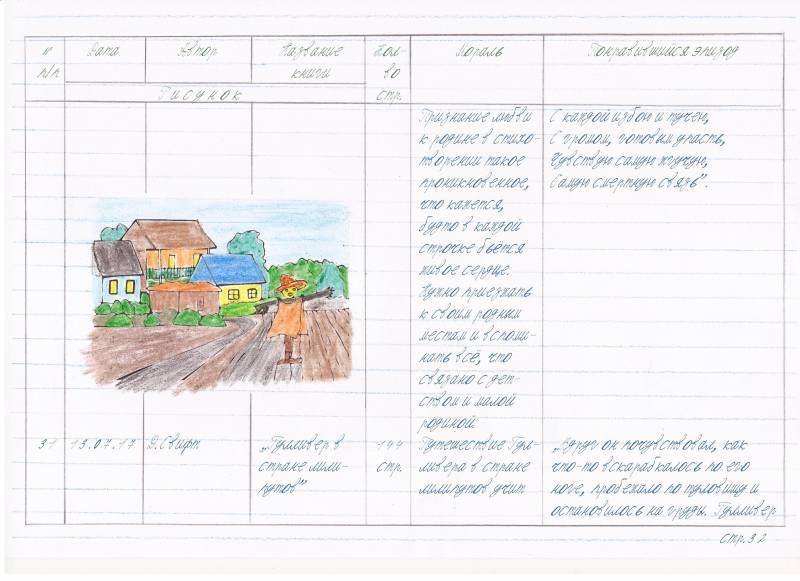 № п/п
Дата
Автор
Название книги
Кол-во стр.
Мораль
Понравившийся эпизод
Рисунок
Признание любви
к родине в стихо-
творении такое
проникновенное,
что кажется,
будто в каждой
строчке бьётся
живое сердце.
Нужно приезжать
к своим родным
местам и вспоми-
нать всё, что
связано с дет-
ством и малой
родиной.
С каждой избою и тучею,
С громом, готовым упасть,
Чувствую самую жгучую,
Самую смертную связь".
31
13.07.17
Д. Свифт
„Гулливер в
стране лили-
путов"
144
стр.
Путешествие Гул-
ливера в стране
лилипутов учит
„Вдруг он почувствовал, как
что-то вскарабкалось по его
ноге, пробежало по туловищу и
остановилось на груди. Гулливер
стр. 32